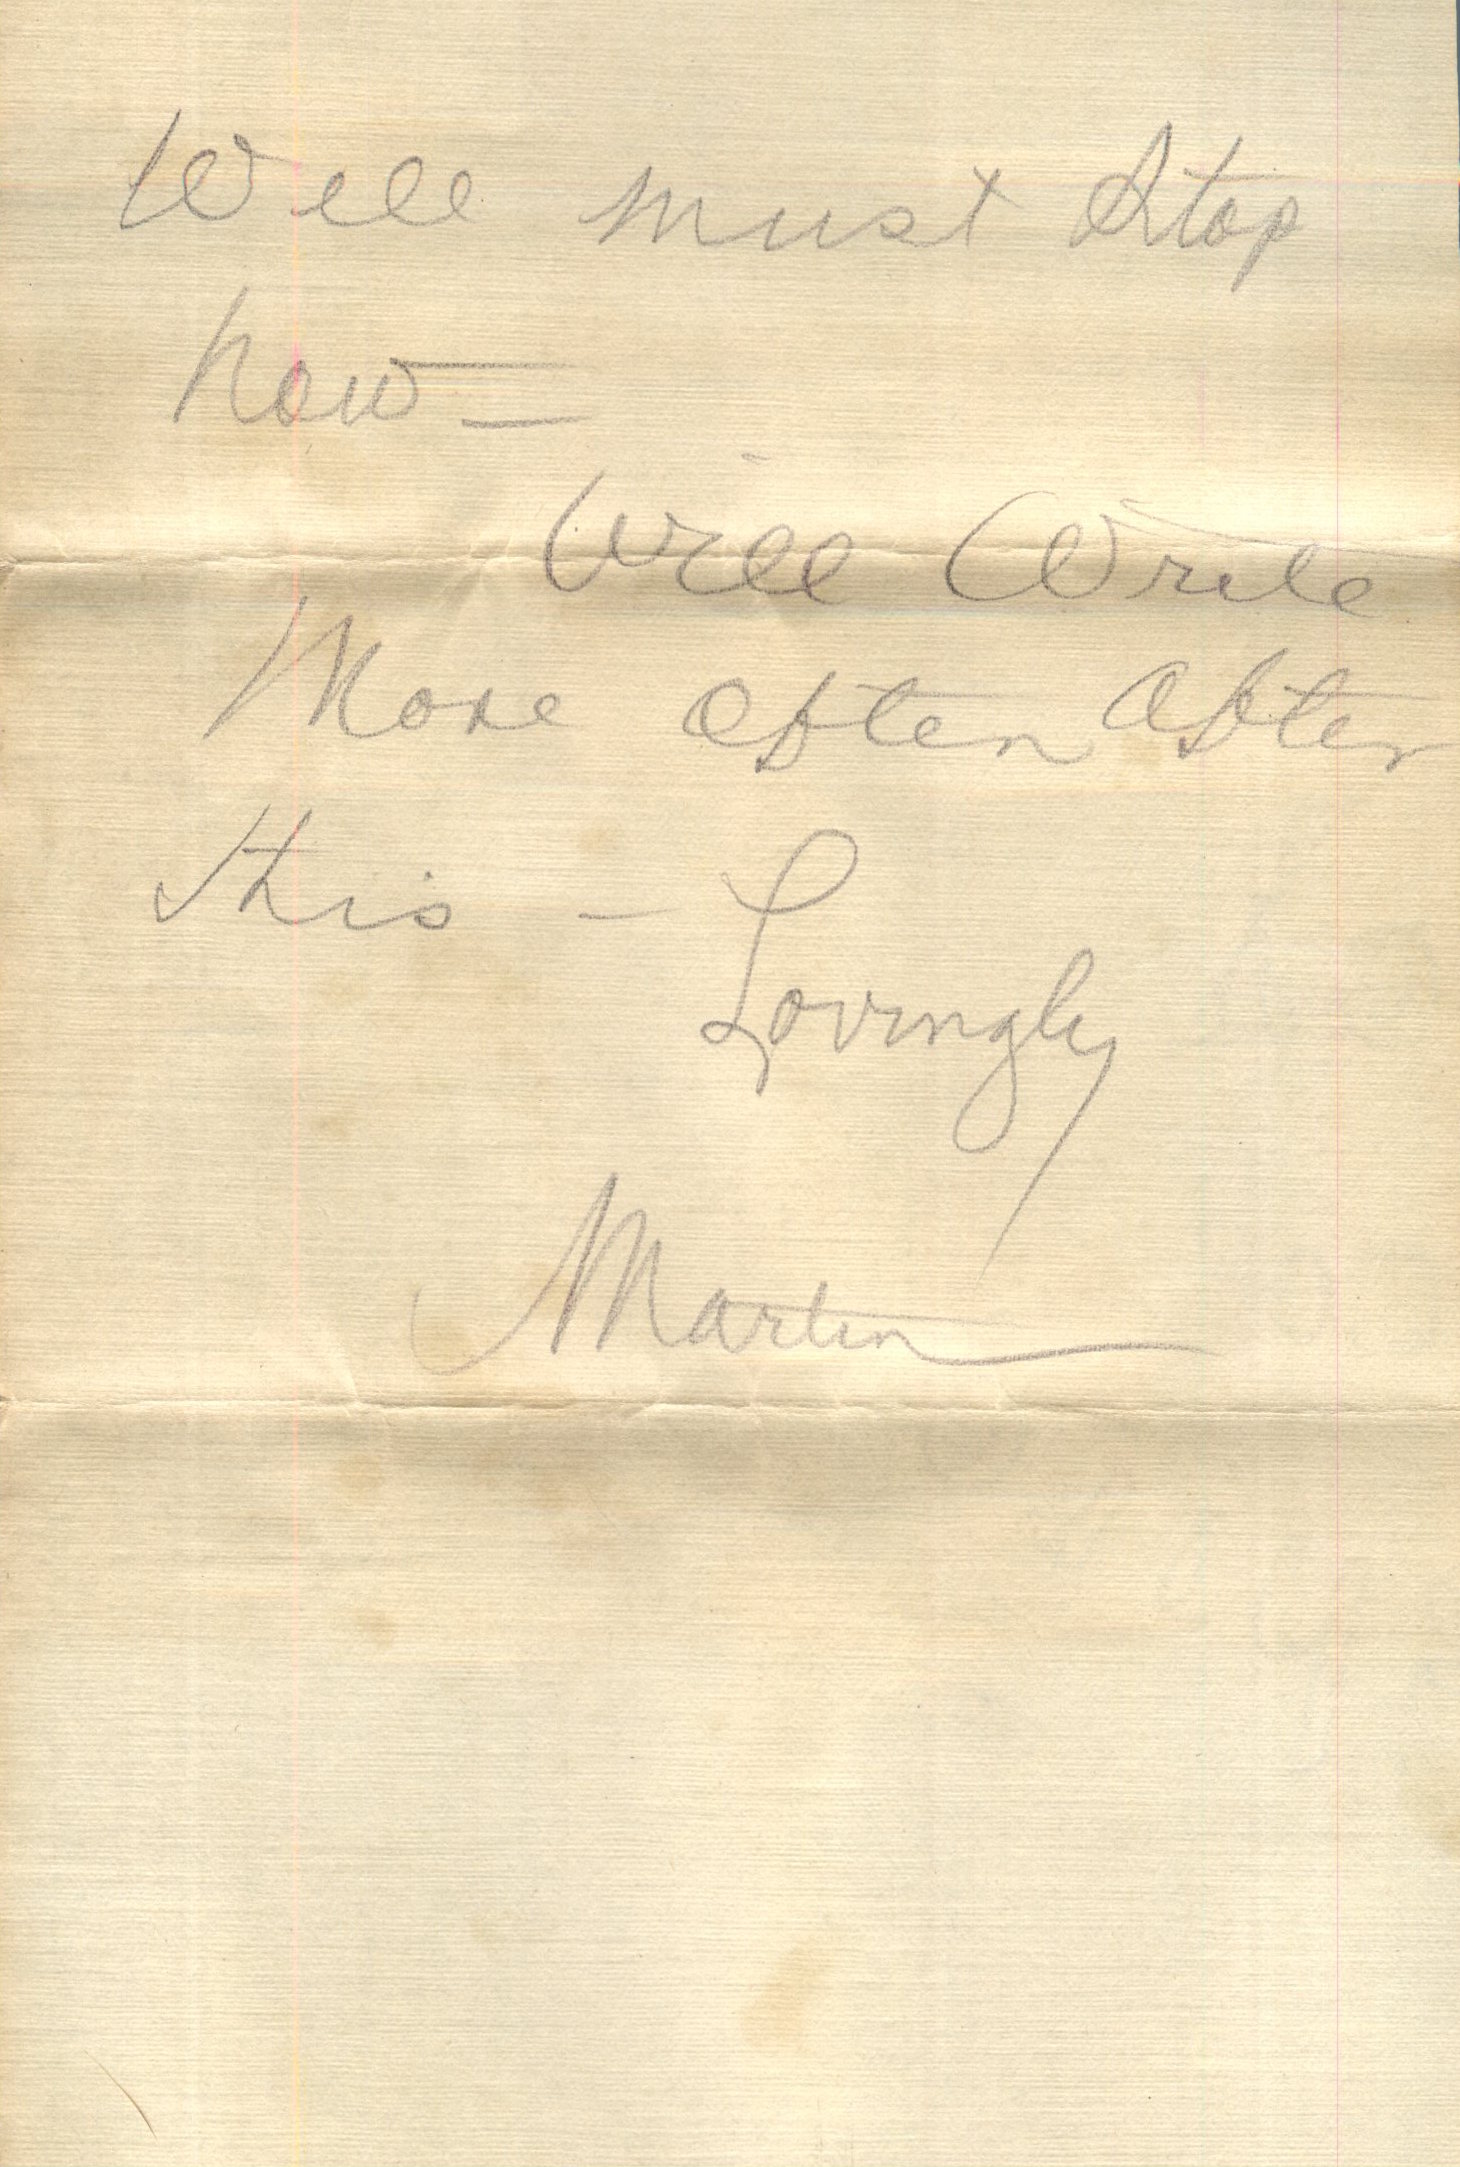 Well must Stop
now —
Will Write
More often after
this — Lovingly
Martin